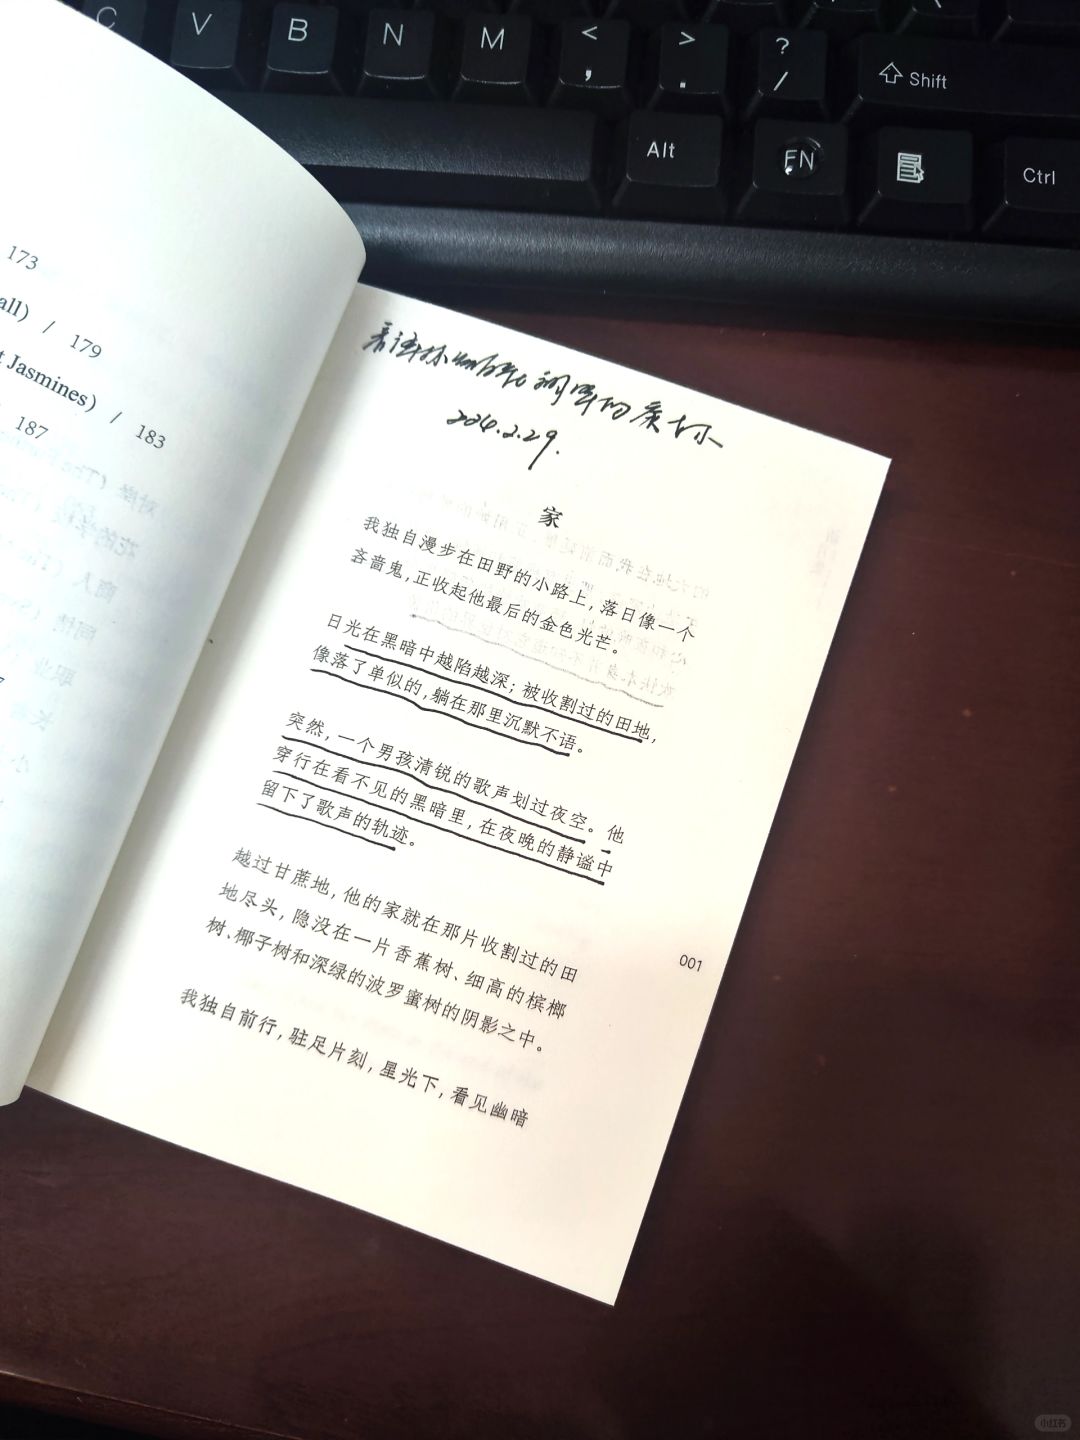 C
V
B
N
M
<
,
>
.
?
/
Shift
Alt
FN
Ctrl
173
all) / 179
t Jasmines) / 183
187
2024.2.29.
家
我独自漫步在田野的小路上，落日像一个
吝啬鬼，正收起他最后的金色光芒。
日光在黑暗中越陷越深；被收割过的田地，
像落了单似的，躺在那里沉默不语。
突然，一个男孩清锐的歌声划过夜空。他
穿行在看不见的黑暗里，在夜晚的静谧中
留下了歌声的轨迹。
越过甘蔗地，他的家就在那片收割过的田
地尽头，隐没在一片香蕉树、细高的槟榔
树、椰子树和深绿的波罗蜜树的阴影之中。
我独自前行，驻足片刻，星光下，看见幽暗
001
小红书